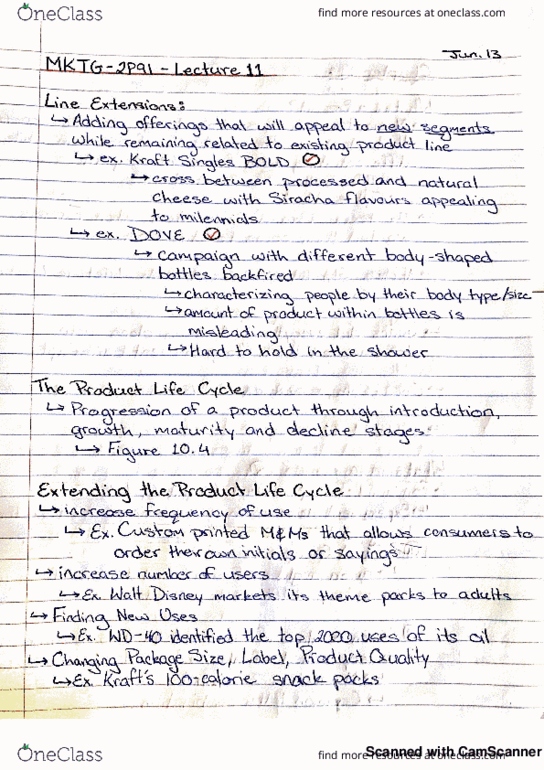 OneClass
find more resources at oneclass.com
Jun. 13
MKTG-2P91 - Lecture 11
Line Extensions:
↳ Adding offerings that will appeal to new segments
while remaining related to existing product line
↳ ex. Kraft Singles BOLD
↳ cross between processed and natural
cheese with Siracha flavours appealing
to milennials
↳ ex. DOVE
↳ campaign with different body-shaped
bottles backfired
↳ characterizing people by their body type/size
↳ amount of product within bottles is
misleading
↳ Hard to hold in the shower
The Product Life Cycle
↳ Progression of a product through introduction,
growth, maturity and decline stages
↳ Figure 10.4
Extending the Product Life Cycle
↳ increase frequency of use
↳ Ex. Custom printed M&Ms that allows consumers to
order their own initials or sayings
↳ increase number of users
↳ Ex. Walt Disney markets its theme parks to adults
↳ Finding New Uses
↳ Ex. WD-40 identified the top 2000 uses of its oil
↳ Changing Package Size, Label, Product Quality
↳ Ex. Kraft's 100-calorie snack packs
OneClass
find more resources at oneclass.com
Scanned with CamScanner